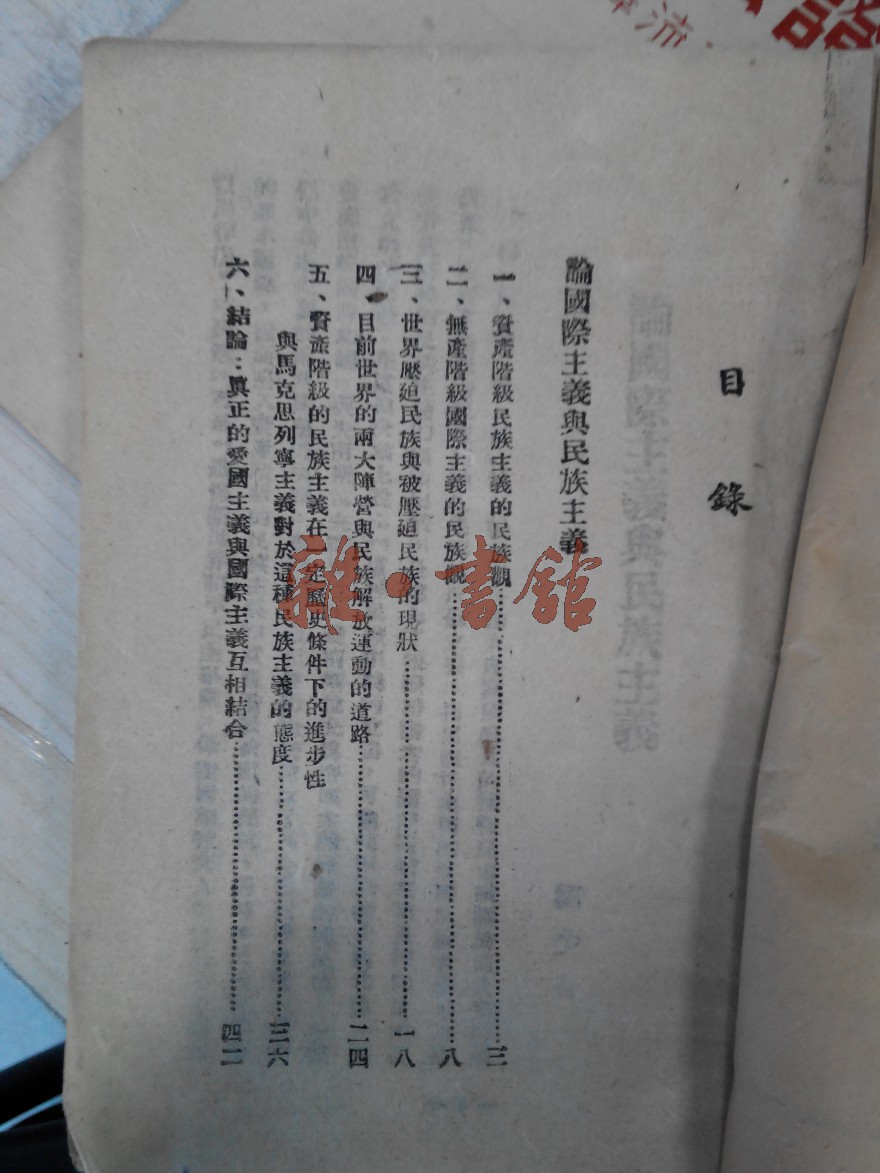 目錄
論國際主義與民族主義
一、資產階級民族主義的民族觀……三
二、無產階級國際主義的民族觀……八
三、世界壓迫民族與被壓迫民族的現狀……一八
四、目前世界的兩大陣營與民族解放運動的道路……二四
五、資產階級的民族主義在一定歷史條件下的進步性
與馬克思列寧主義對於這種民族主義的態度……三六
六、結論：眞正的愛國主義與國際主義互相結合……四二
雜·書館
流